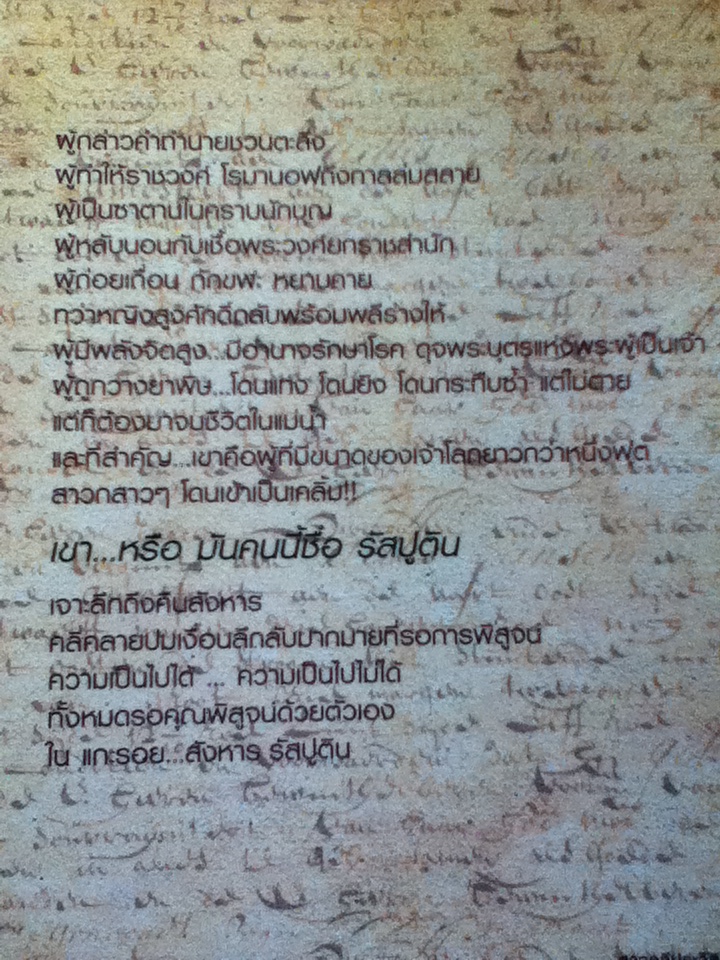 ผู้กล่าวคำทำนายชวนตะลึง
ผู้ทำให้ราชวงศ์ โรมานอฟถึงกาลล่มสลาย
ผู้เป็นซาตานในคราบนักบุญ
ผู้หลับนอนกับเชื้อพระวงศ์ยกราชสำนัก
ผู้ถ่อยเถื่อน ดักขฬะ หยาบคาย
ทว่าหญิงสูงศักดิ์กลับพร้อมพลีร่างให้
ผู้มีพลังจิตสูง...มีอำนาจรักษาโรค ดุจพระบุตรแห่งพระผู้เป็นเจ้า
ผู้ถูกวางยาพิษ...โดนแทง โดนยิง โดนกระทืบซ้ำ แต่ไม่ตาย
แต่ก็ต้องมาจบชีวิตในแม่น้ำ
และที่สำคัญ...เขาคือผู้ที่มีขนาดของเจ้าโลกยาวกว่าหนึ่งฟุต
สาวกสาวๆ โดนเข้าเป็นเคลิ้ม!!
เขา...หรือ มันคนนี้ชื่อ รัสปูติน
เจาะลึกถึงคืนสังหาร
คลี่คลายปมเงื่อนลึกลับมากมายที่รอการพิสูจน์
ความเป็นไปได้ ... ความเป็นไปไม่ได้
ทั้งหมดรอคุณพิสูจน์ด้วยตัวเอง
ใน แกะรอย...สังหาร รัสปูติน